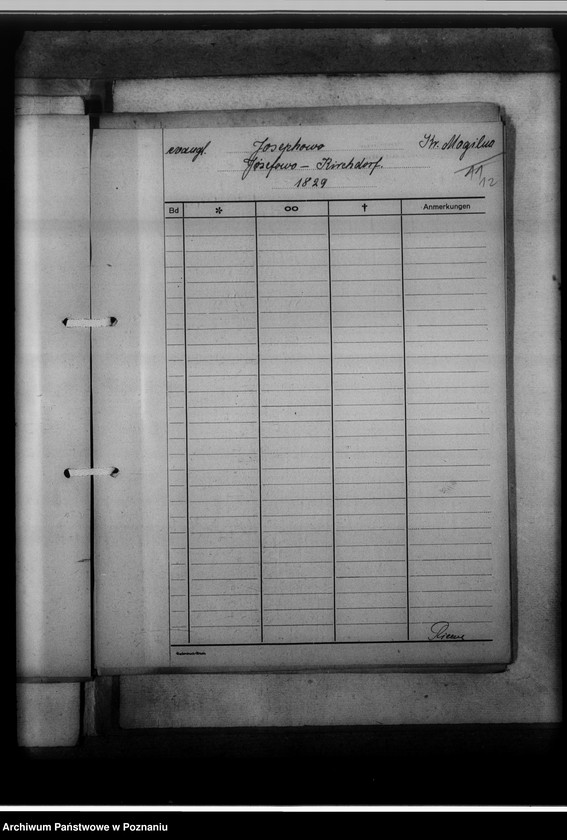 evangl. Josephowo Kr. Mogilno
Józefowo - Kirchdorf.
1829
11
12
Bd * ∞ † Anmerkungen
Archiwum Państwowe w Poznaniu